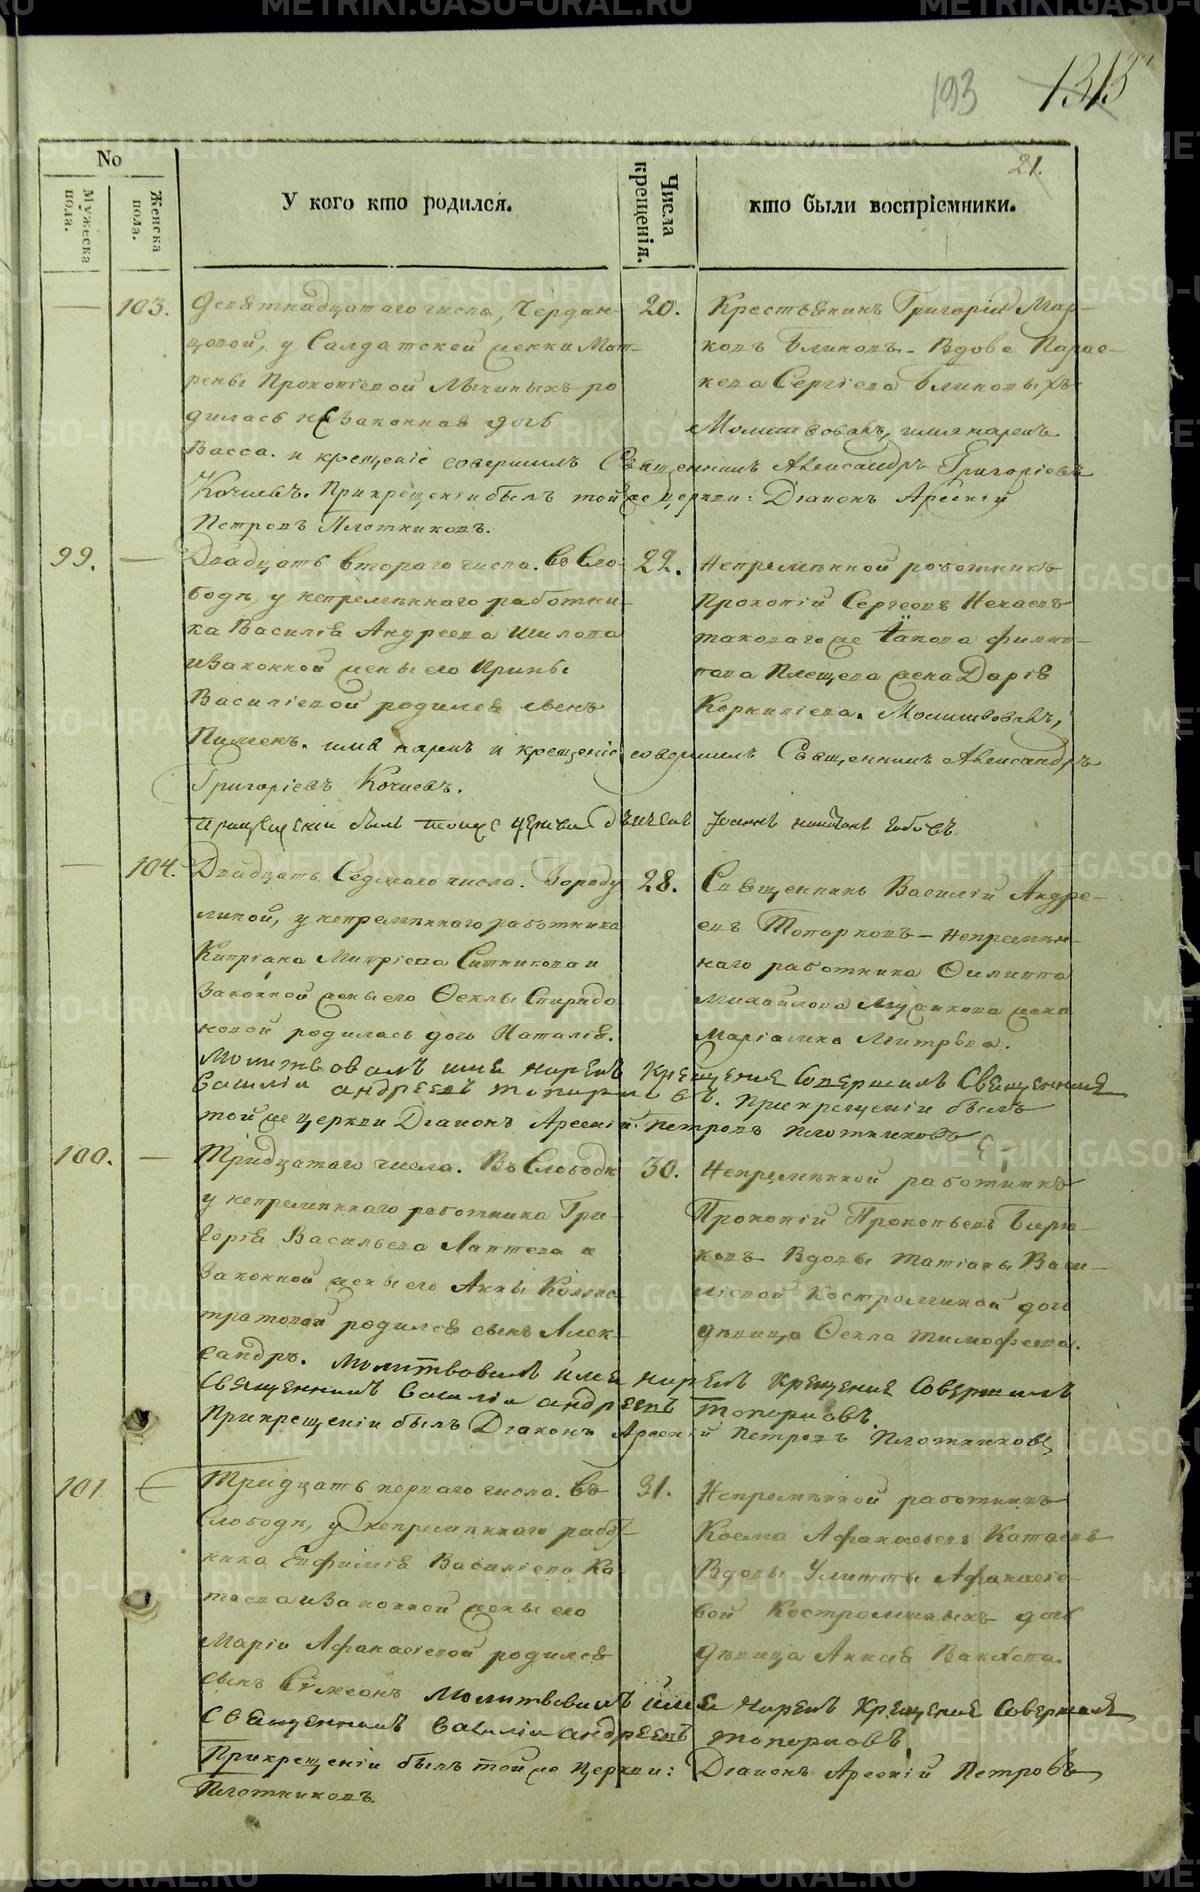 193 1313
21.
No
Мужеска пола.
Женска пола.
У кого кто родился.
Числа крещенія.
кто были воспріемники.
— 103. Девятнадцатаго числа, Чердан-
цовой, у Салдатской женки Мат-
рены Прокопіевой Лычиныхъ ро
дилась незаконная дочь
Васса. и крещеніе совершилъ Священникъ Александръ Григоріевъ
Кочневъ. При крещеніи былъ той же церкви: Діаконъ Арсеній
Петровъ Плотниковъ.
20. Крестьянинъ Григорій Мар-
ковъ Блиновъ. Вдова Парас-
кева Сергіева Блиновыхъ
Молитвовалъ, имя нарекъ
99. — Двадцать втораго числа. въ Сло-
бодѣ, у непремѣннаго работни-
ка Василія Андреева Шилова
и законной жены его Ирины
Василіевой родился сынъ
Пименъ. имя нарекъ и крещеніе совершилъ Священникъ Александръ
Григоріевъ Кочневъ.
При крещеніи былъ тоиже церкви дьячекъ Іоаннъ
22. Непремѣнной работникъ
Прокопій Сергеевъ Некаевъ
таковаго же Іакова Филип-
пова Плещева жена Дарія
Корниліева. Молитвовалъ,
— 104. Двадцать Седмаго числа. Бороду
линой, у непремѣннаго работника
Кипріана Митріева Ситникова и
законной жены его Ѳеклы Спиридо
новой родилась дочь Наталія.
Молитвовалъ имя нарекъ Крещение Совершилъ Священникъ
василіи андреевъ топорковъ. При крещеніи былъ
той же церкви Діаконъ Арсеній Петровъ Плотниковъ
28. Священникъ Василій Андре-
евъ Топорковъ — Непремѣн-
наго работника Филиппа
Михайлова жена
Маріамна Митрева.
100. — Тридцатаго числа. Въ Слободѣ
у непремѣннаго работника Гри-
горія Васильева Лаптева и
законной жены его Анны Калис
тратовой родился сынъ Алек-
сандръ. Молитвовалъ имя нарекъ Крещение Совершилъ
Священникъ василіи андреевъ топорковъ.
При крещеніи былъ Діаконъ Арсеній Петровъ Плотниковъ
30. Непремѣнной работникъ
Прокопій Прокопьевъ Бирю-
ковъ Вдовы Татіаны Васи-
ліевой Костроминой дочь
дѣвица Ѳекла Тимофеева.
101 — Тридцать перваго числа. въ
Слободѣ, у непремѣннаго работ-
ника Евфимія Василіева Ка
таева и законной жены его
Маріи Афанасіевой родился
сынъ Сѵмеонъ Молитвовалъ имя нарекъ Крещение Совершилъ
Священникъ василіи андреевъ топорковъ
При крещеніи былъ той же церкви: Діаконъ Арсеній Петровъ
Плотниковъ.
31. Непремѣнной работникъ
Косма Афанасіевъ Катаевъ
Вдовы Улитты Афанасіе-
вой Костроминыхъ дочь
дѣвица Анисія Вакхова.